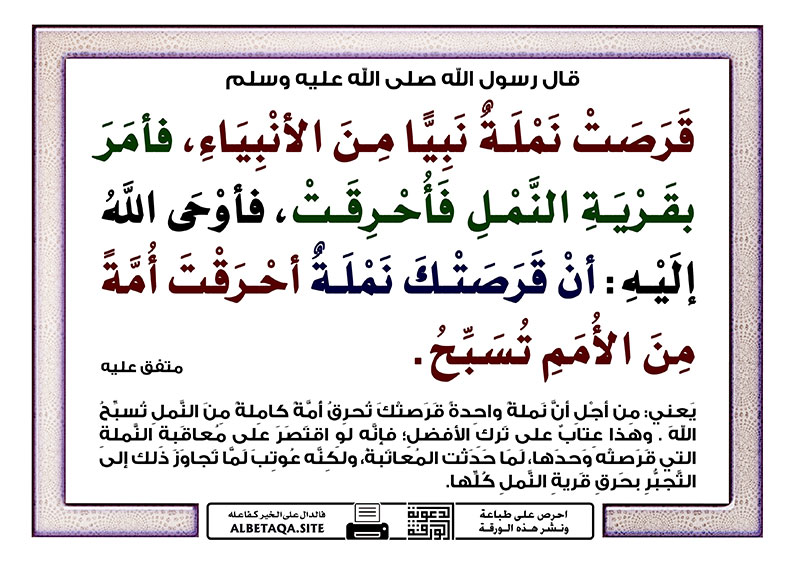 قال رسول الله صلى الله عليه وسلم
قَرَصَتْ نَمْلَةٌ نَبِيًّا مِنَ الأنْبِيَاءِ، فأمَرَ
بقَرْيَةِ النَّمْلِ فَأُحْرِقَتْ، فأوْحَى اللَّهُ
إلَيْهِ: أنْ قَرَصَتْكَ نَمْلَةٌ أحْرَقْتَ أُمَّةً
مِنَ الأُمَمِ تُسَبِّحُ.
متفق عليه
يَعني: من أجْلِ أنَّ نَملةً واحدةً قَرَصتْكَ تُحرِقُ أمَّةً كاملةً مِنَ النَّملِ تُسبِّحُ
اللهَ. وهَذا عِتابٌ على تَركِ الأفضلِ؛ فإنَّه لو اقتَصَرَ على مُعاقَبةِ النَّملةِ
التي قَرصتْه وَحدَها، لَمَا حَدَثَت المُعاتَبةُ، ولَكنَّه عُوتِبَ لَمَّا تَجاوَزَ ذَلك إلى
التَّجبُّرِ بحَرقِ قَريةِ النَّملِ كُلِّها.
احرص على طباعة
ونشر هذه الورقة
الدعوية
الورقة
فالدال على الخير كفاعله
ALBETAQA.SITE